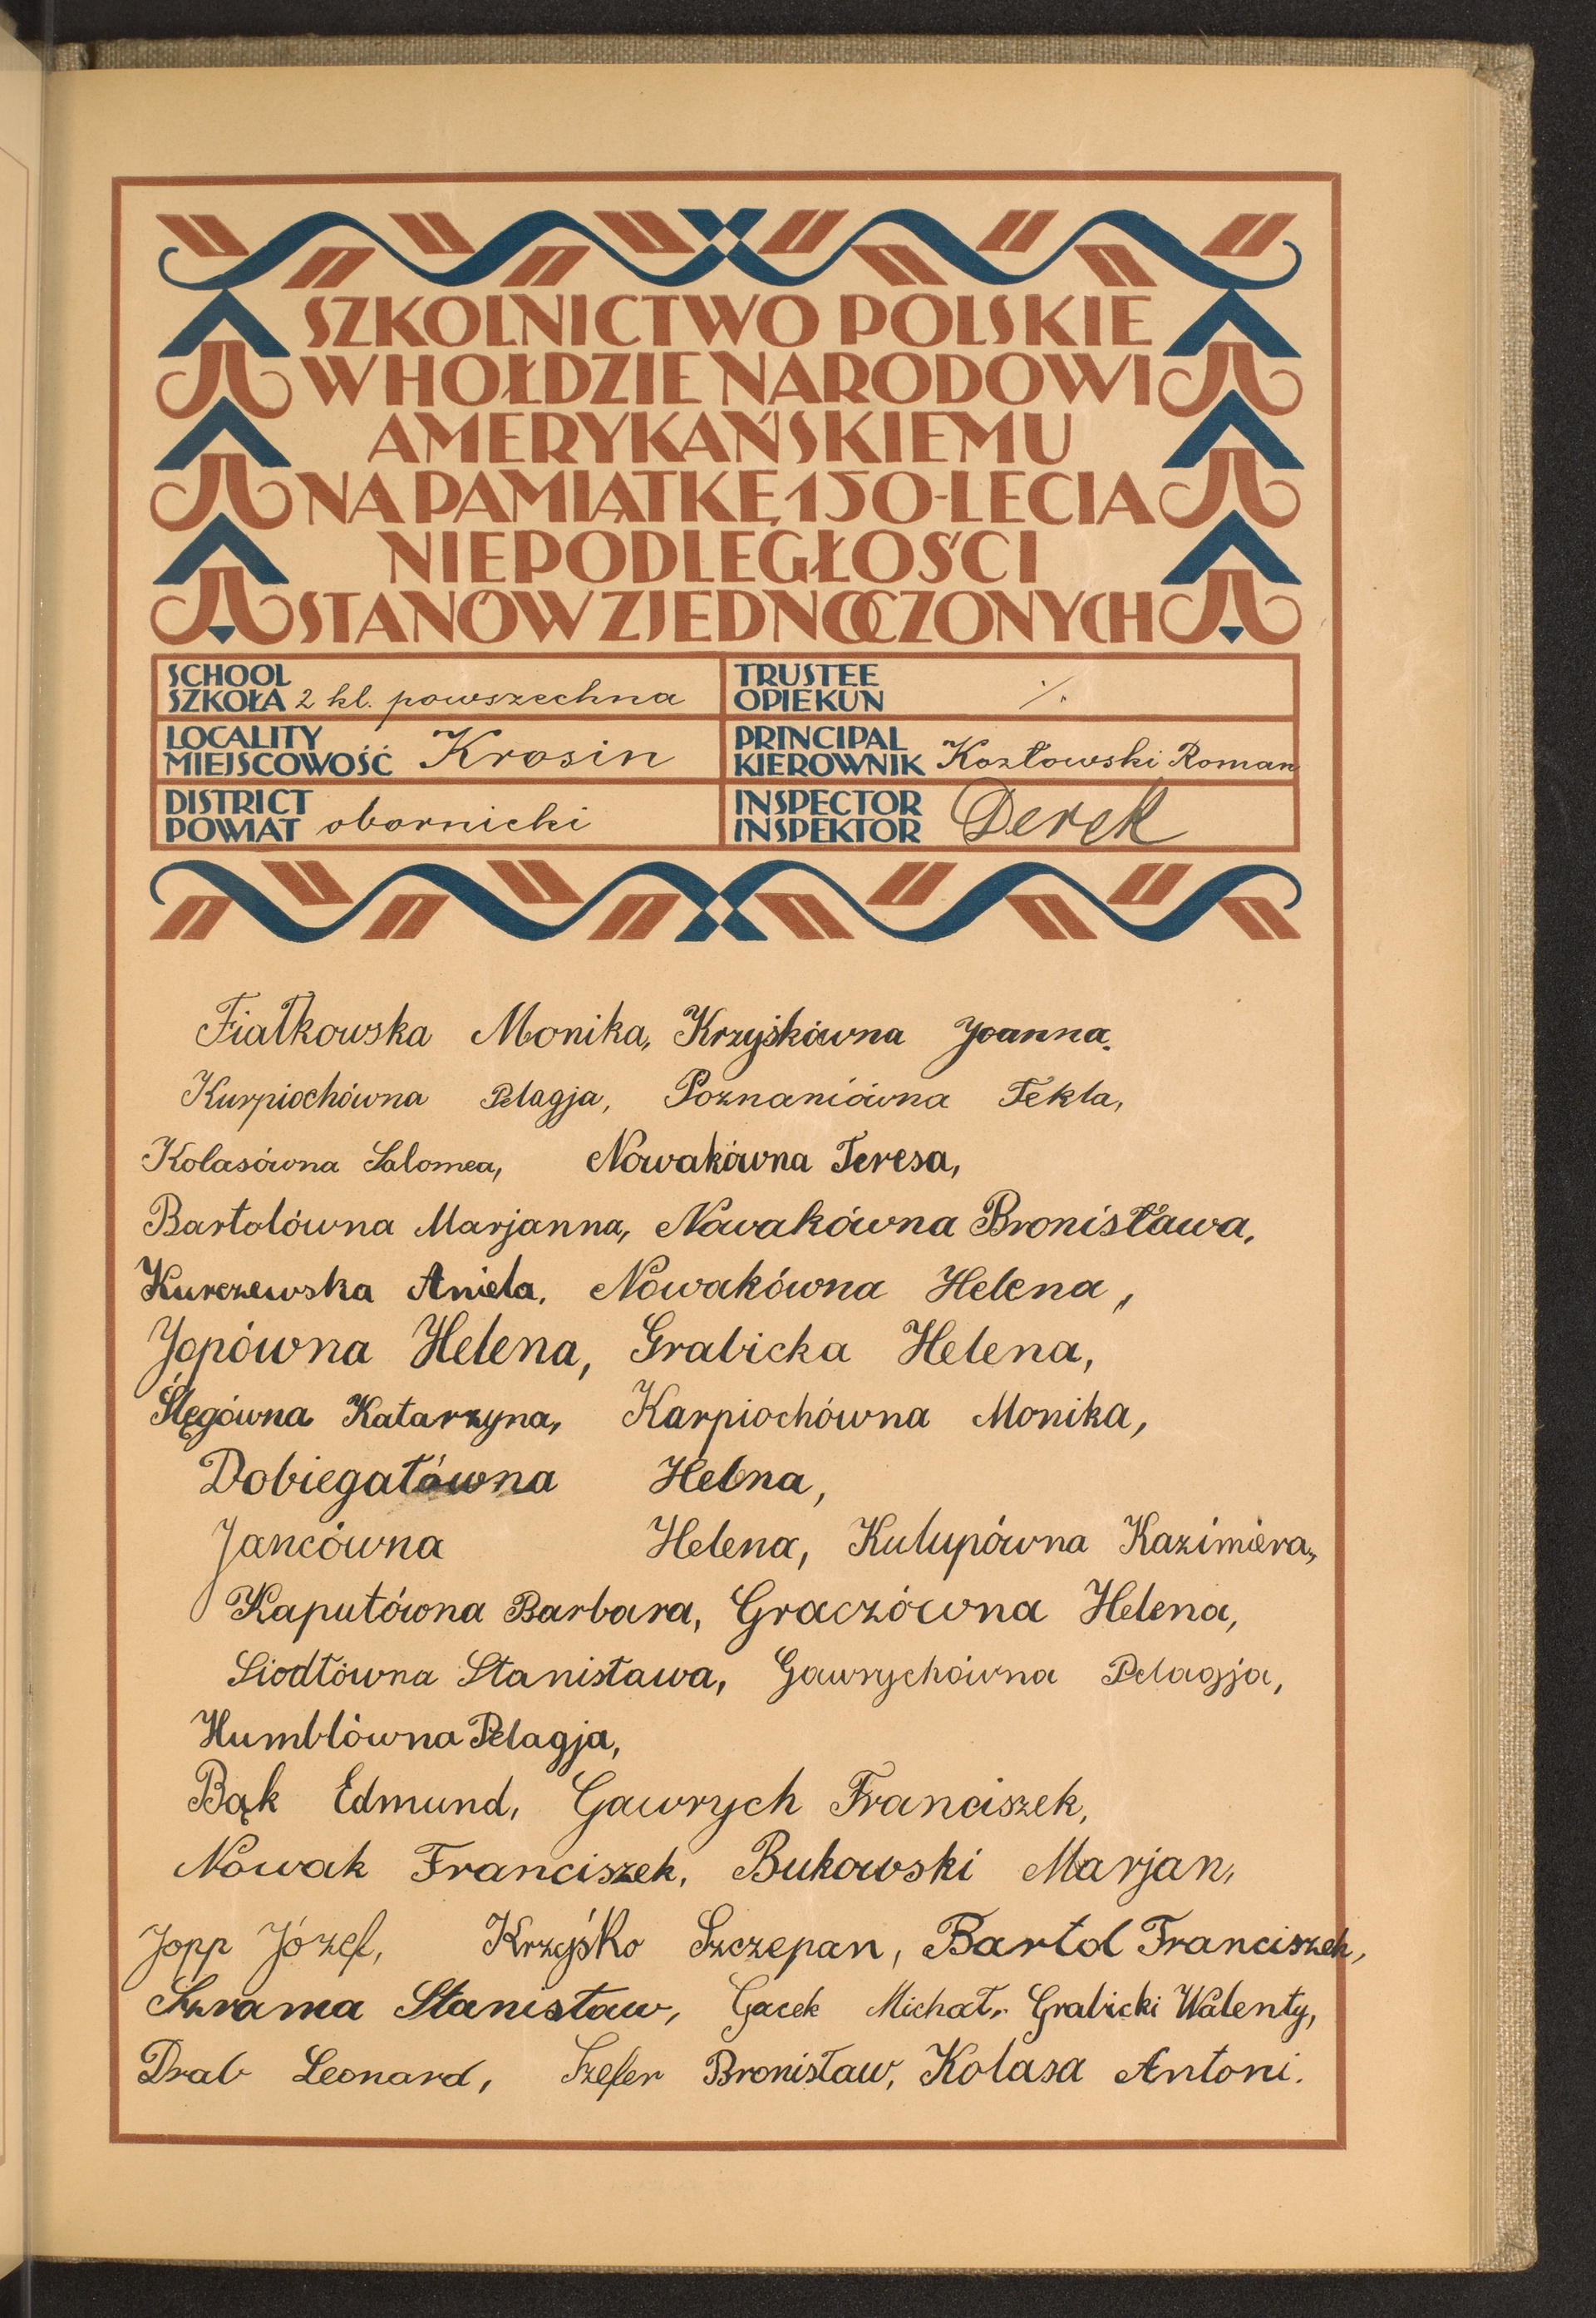 SZKOLNICTWO POLSKIE
W HOŁDZIE NARODOWI
AMERYKAŃSKIEMU
NA PAMIĄTKĘ 150-LECIA
NIEPODLEGŁOŚCI
STANÓW ZJEDNOCZONYCH
SCHOOL
SZKOŁA 2 kl. powszechna
TRUSTEE
OPIEKUN ./.
LOCALITY
MIEJSCOWOŚĆ Krosin
PRINCIPAL
KIEROWNIK Kozłowski Roman
DISTRICT
POWIAT obornicki
INSPECTOR
INSPEKTOR Derek
Fiałkowska Monika, Krzyśkówna Joanna.
Kurpiochówna Pelagja, Poznaniówna Tekla,
Kolasówna Salomea, Nowakówna Teresa,
Bartolówna Marjanna, Nowakówna Bronisława,
Kurczewska Aniela, Nowakówna Helena,
Jopówna Helena, Grabicka Helena,
Ślęgówna Katarzyna, Karpiochówna Monika,
Dobiegałówna Helena,
Jancówna Helena, Kulupówna Kazimiera,
Kaputówna Barbara, Graczówna Helena,
Siodłówna Stanisława, Gawrychówna Pelagja,
Humblówna Pelagja,
Bąk Edmund, Gawrych Franciszek,
Nowak Franciszek, Bukowski Marjan,
Jopp Józef, Krzyśko Szczepan, Bartol Franciszek,
Szrama Stanisław, Gacek Michał, Grabicki Walenty,
Drab Leonard, Szefer Bronisław, Kolasa Antoni.